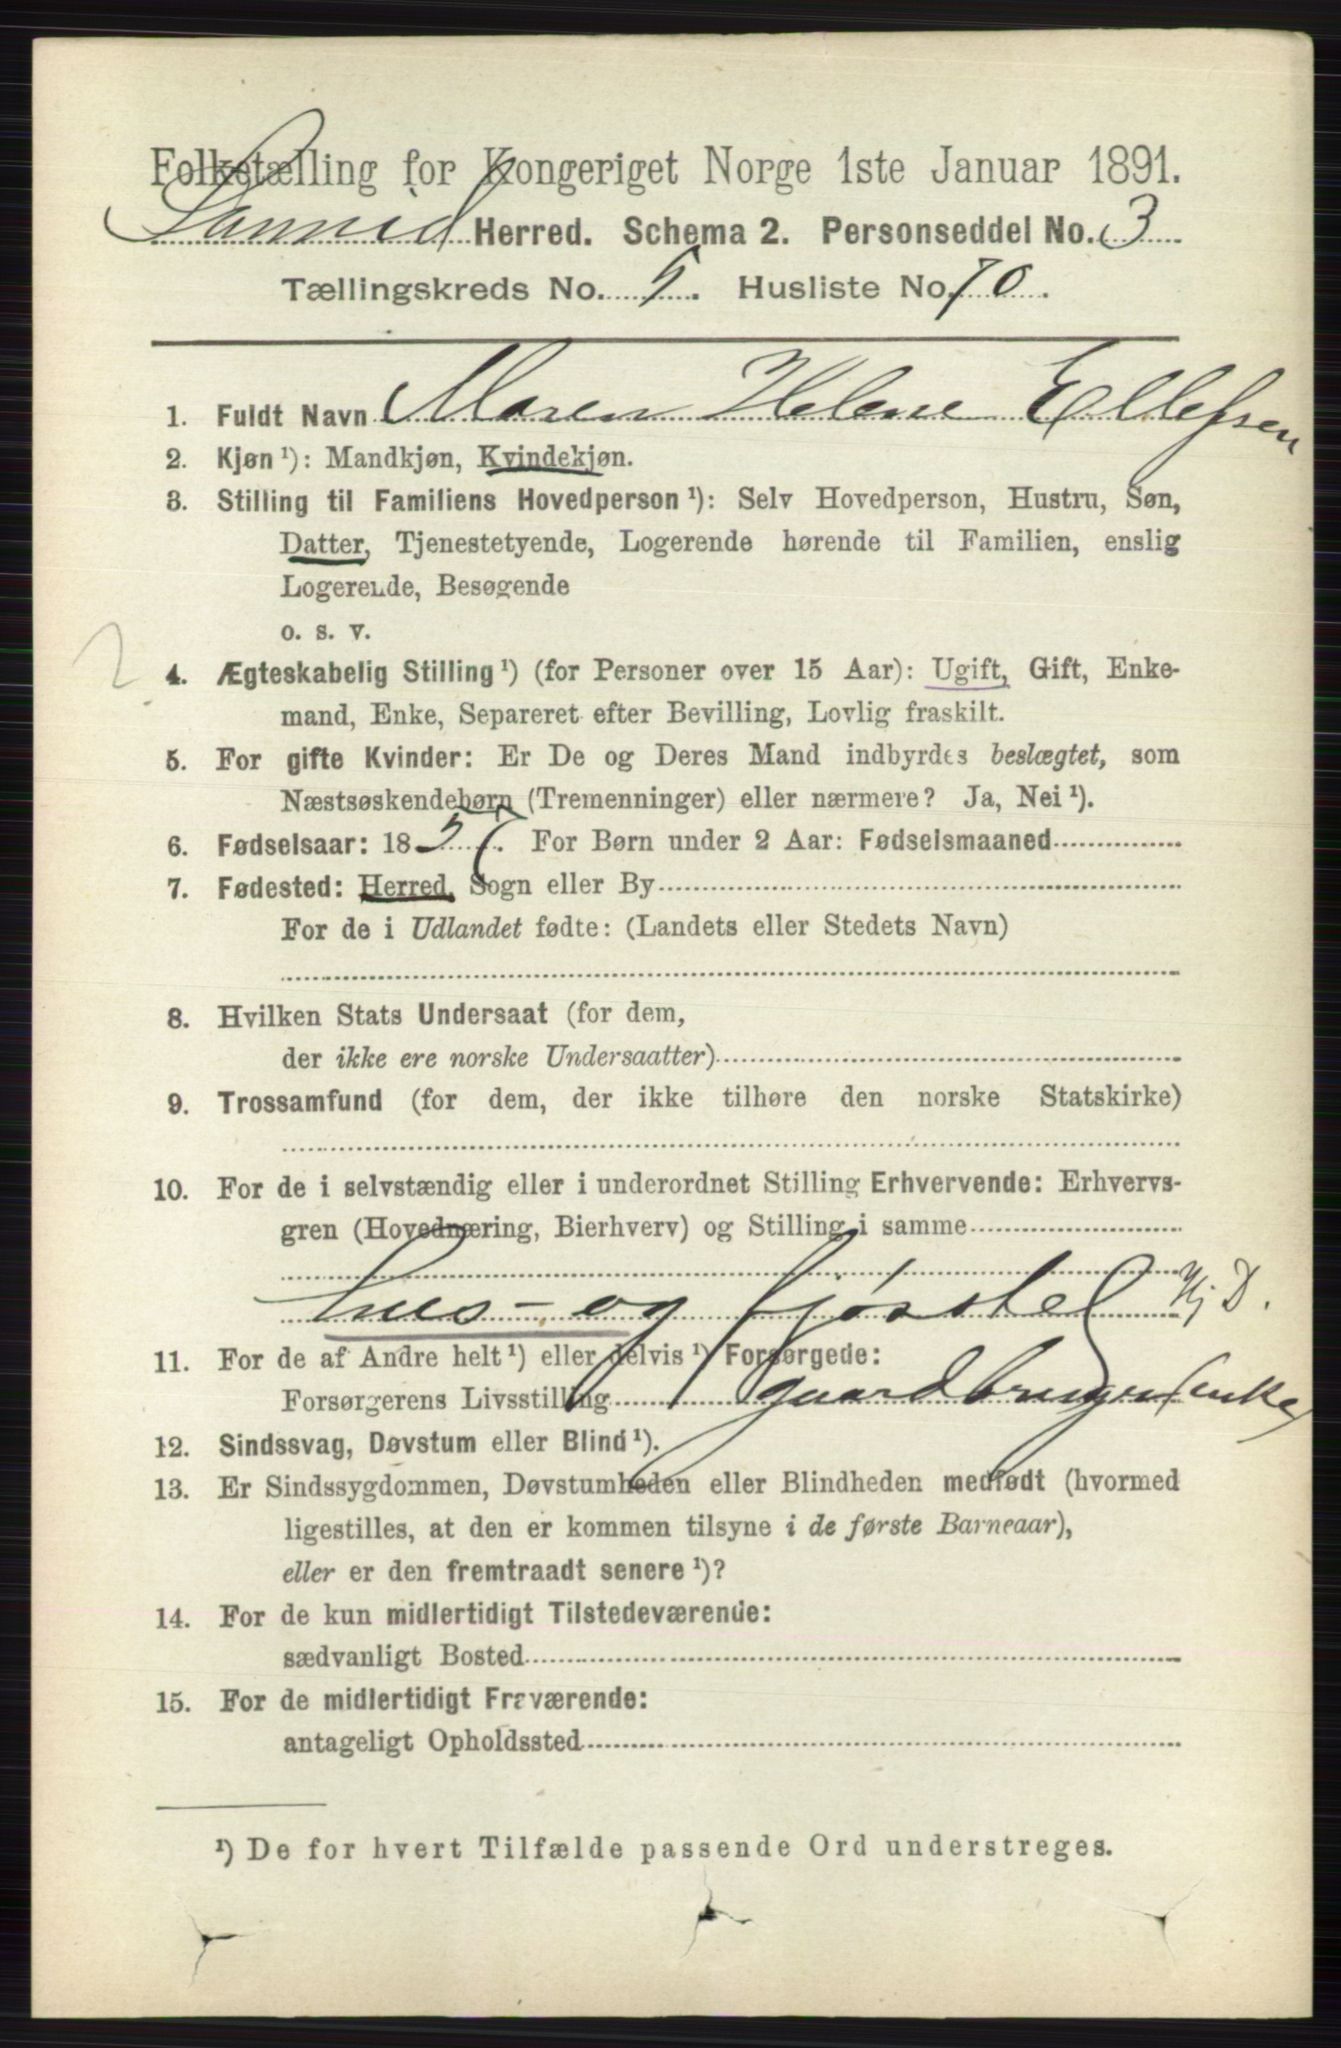 Folketælling for Kongeriget Norge 1ste Januar 1891.
Sannid Herred. Schema 2. Personseddel No. 3
Tællingskreds No. 5. Husliste No. 70.
1. Fuldt Navn Maren Helene Ellefsen
2. Kjøn ¹): Mandkjøn, Kvindekjøn.
3. Stilling til Familiens Hovedperson ¹): Selv Hovedperson, Hustru, Søn,
Datter, Tjenestetyende, Logerende hørende til Familien, enslig
Logerende, Besøgende
o. s. v.
2
4. Ægteskabelig Stilling ¹) (for Personer over 15 Aar): Ugift, Gift, Enke-
mand, Enke, Separeret efter Bevilling, Lovlig fraskilt.
5. For gifte Kvinder: Er De og Deres Mand indbyrdes beslægtet, som
Næstsøskendebørn (Tremenninger) eller nærmere? Ja, Nei ¹).
6. Fødselsaar: 18 57. For Børn under 2 Aar: Fødselsmaaned
7. Fødested: Herred, Sogn eller By
For de i Udlandet fødte: (Landets eller Stedets Navn)
8. Hvilken Stats Undersaat (for dem,
der ikke ere norske Undersaatter)
9. Trossamfund (for dem, der ikke tilhøre den norske Statskirke)
10. For de i selvstændig eller i underordnet Stilling Erhvervende: Erhvervs-
gren (Hovednæring, Bierhverv) og Stilling i samme
hus- og fjøsstel Hj D.
11. For de af Andre helt ¹) eller delvis ¹) Forsørgede:
Forsørgerens Livsstilling gaardbruger enke
12. Sindssvag, Døvstum eller Blind ¹).
13. Er Sindssygdommen, Døvstumheden eller Blindheden medfødt (hvormed
ligestilles, at den er kommen tilsyne i de første Barneaar),
eller er den fremtraadt senere ¹)?
14. For de kun midlertidigt Tilstedeværende:
sædvanligt Bosted
15. For de midlertidigt Fraværende:
antageligt Opholdssted
¹) De for hvert Tilfælde passende Ord understreges.